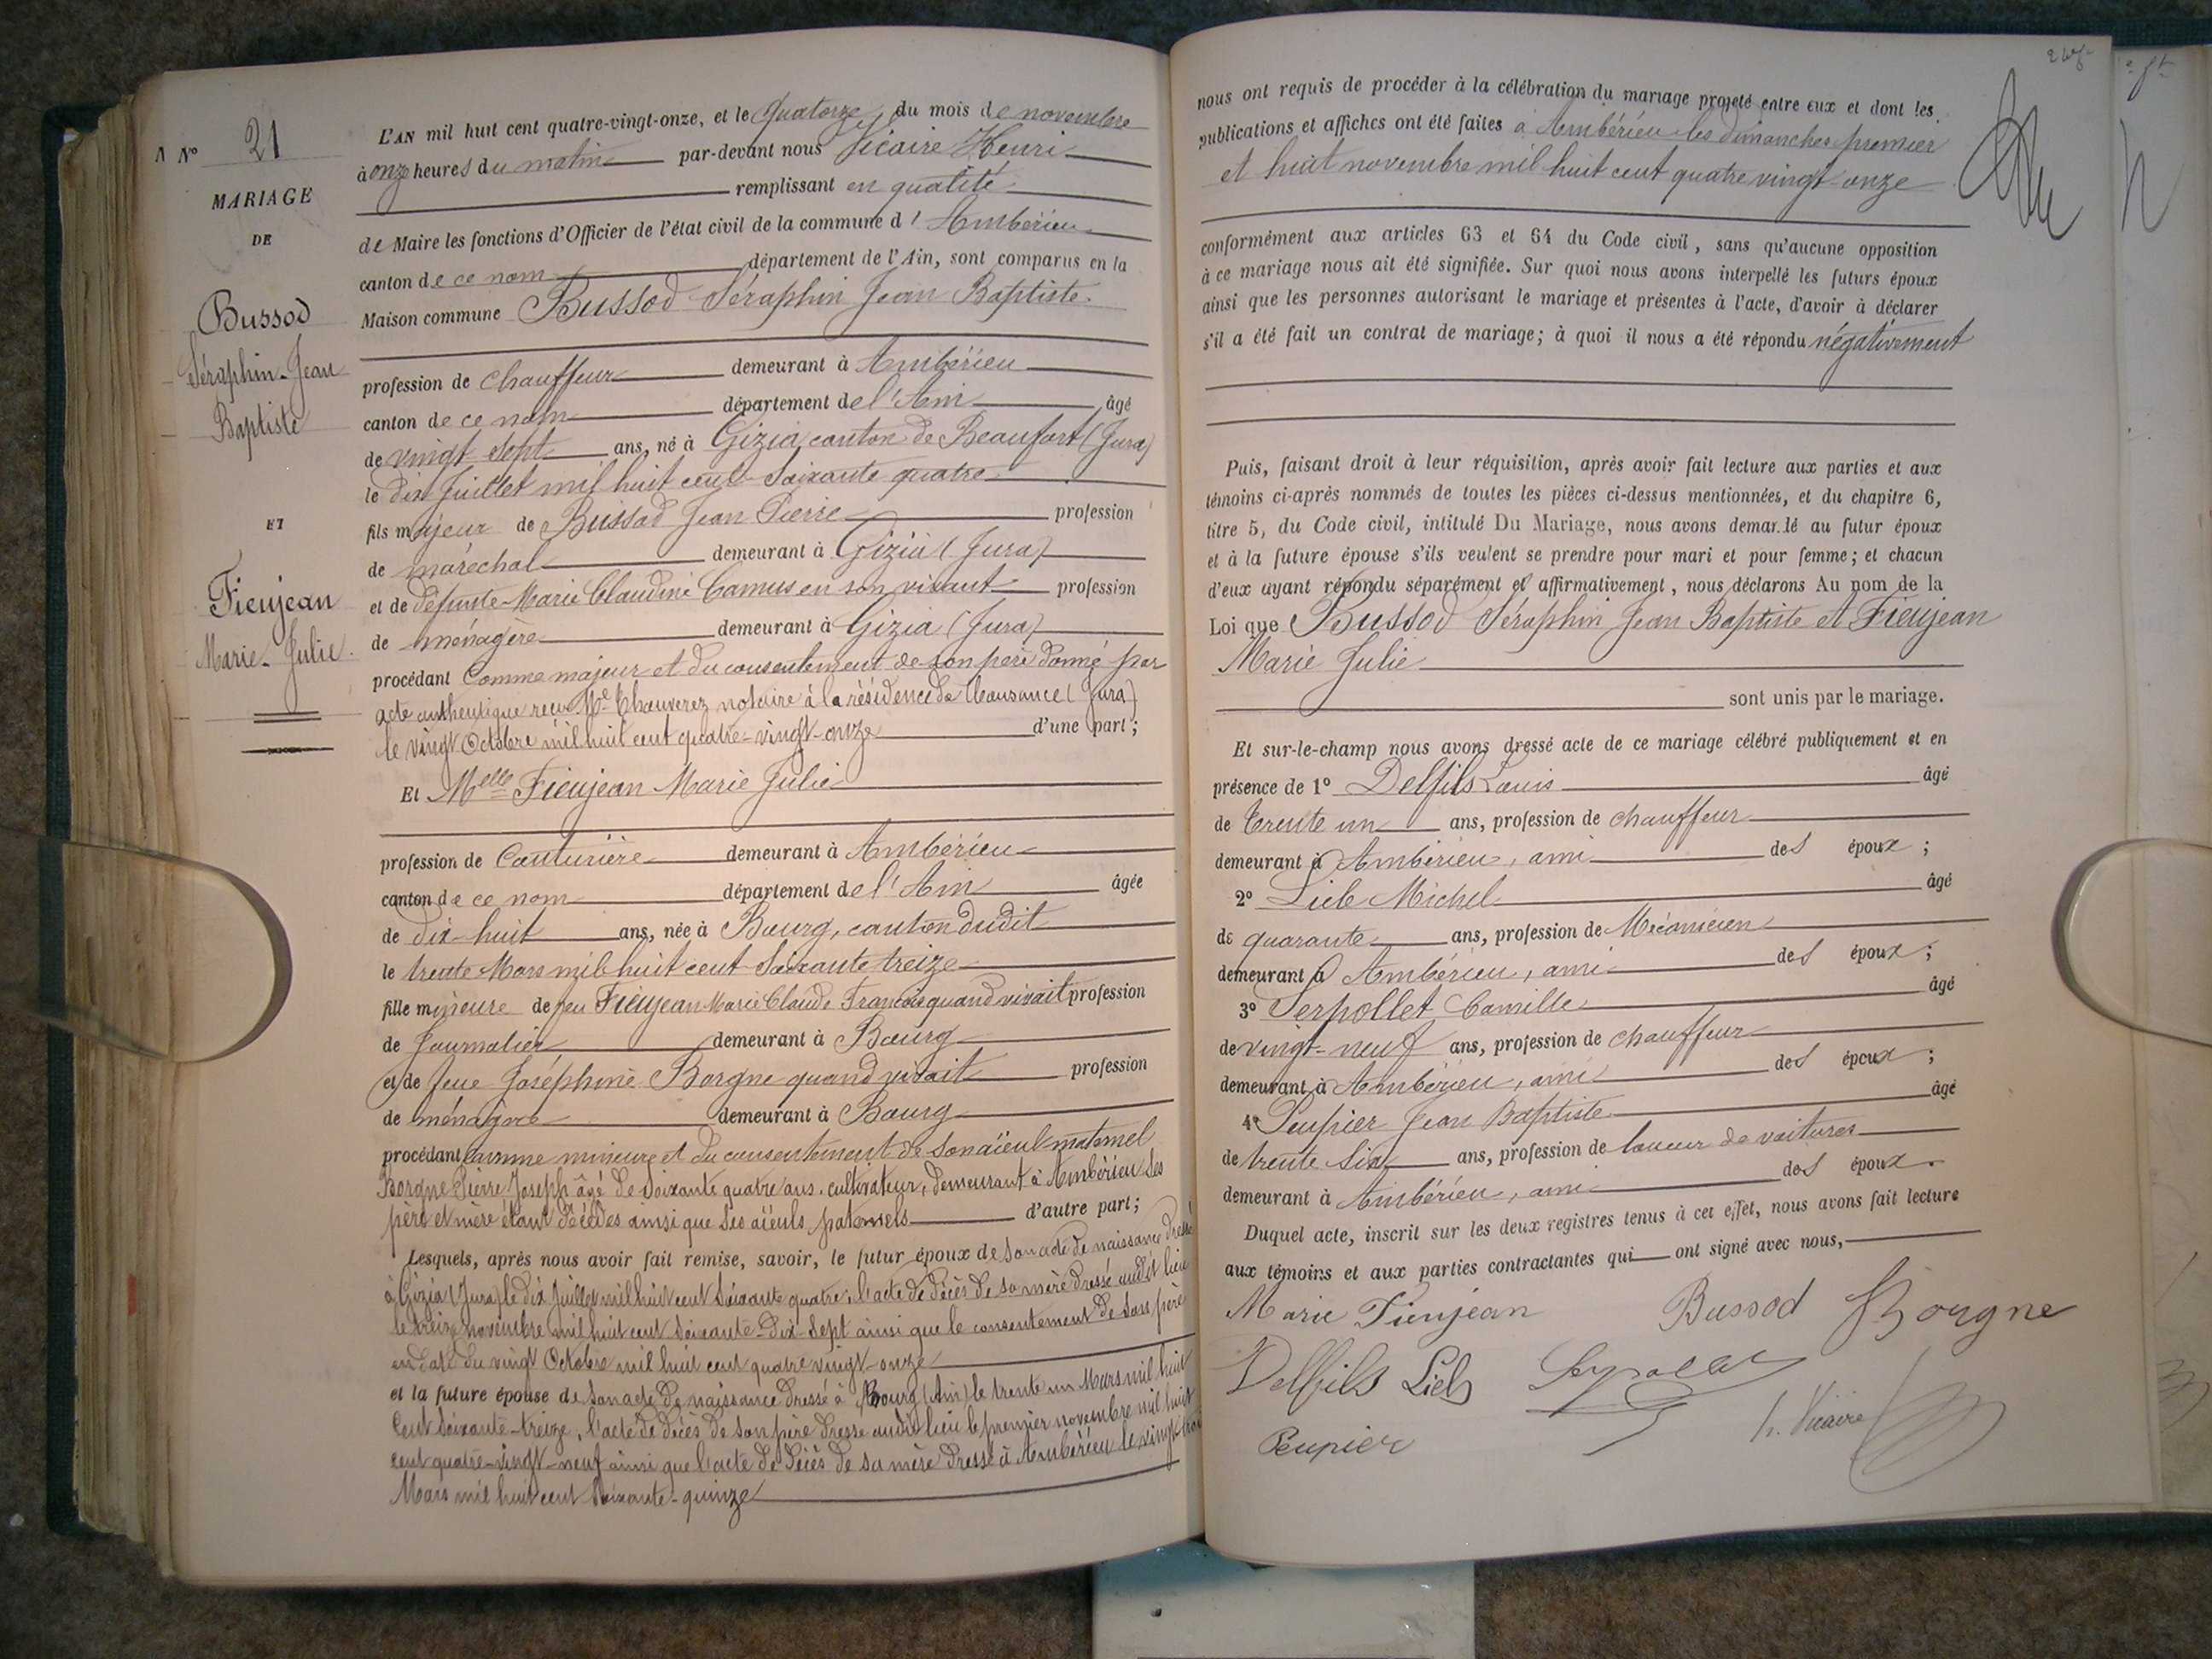 N° 21
MARIAGE
DE
Bussod
Séraphin-Jean
Baptiste
ET
Fieujean
Marie-Julie
L'AN mil huit cent quatre-vingt-onze, et le quatorze du mois de novembre
à onze heures du matin par-devant nous Vicaire Henri
remplissant en qualité
de Maire les fonctions d'Officier de l'état civil de la commune d'Ambérieu
canton de ce nom département de l'Ain, sont comparus en la
Maison commune Bussod Séraphin Jean Baptiste
profession de chauffeur demeurant à Ambérieu
canton de ce nom département de l'Ain âgé
de vingt sept ans, né à Gizia, canton de Beaufort (Jura)
le dix Juillet mil huit cent soixante quatre
fils majeur de Bussod Jean Pierre profession
de maréchal demeurant à Gizia (Jura)
et de défunte Marie Claudine Camus en son vivant profession
de ménagère demeurant à Gizia (Jura)
procédant Comme majeur et du consentement de son père donné par
acte authentique reçu Me Chauverez notaire à la résidence de Cousance (Jura)
le vingt Octobre mil huit cent quatre-vingt-onze d'une part;
Et Melle Fieujean Marie Julie
profession de Couturière demeurant à Ambérieu
canton de ce nom département de l'Ain âgée
de dix-huit ans, née à Bourg, canton dudit
le trente Mars mil huit cent soixante treize
fille mineure de feu Fieujean Marie Claude François quand vivait profession
de Journalier demeurant à Bourg
et de feue Joséphine Borgne quand vivait profession
de ménagère demeurant à Bourg
procédant comme mineure et du consentement de son aïeul maternel
Borgne Pierre Joseph âgé de soixante quatre ans, cultivateur, demeurant à Ambérieu ses
père et mère étant décédés ainsi que ses aïeuls paternels d'autre part;
Lesquels, après nous avoir fait remise, savoir, le futur époux de son acte de naissance dressé
à Gizia (Jura) le dix Juillet mil huit cent soixante quatre, l'acte de décès de sa mère dressé audit lieu
le treize novembre mil huit cent soixante-dix-sept ainsi que le consentement de son père
en date du vingt Octobre mil huit cent quatre vingt-onze
et la future épouse de son acte de naissance dressé à Bourg (Ain) le trente un Mars mil huit
cent soixante-treize, l'acte de décès de son père dressé audit lieu le premier novembre mil huit
cent quatre-vingt-neuf ainsi que l'acte de décès de sa mère dressé à Ambérieu le vingt
Mars mil huit cent soixante-quinze
nous ont requis de procéder à la célébration du mariage projeté entre eux et dont les
publications et affiches ont été faites à Ambérieu les dimanches premier
et huit novembre mil huit cent quatre vingt-onze
conformément aux articles 63 et 64 du Code civil, sans qu'aucune opposition
à ce mariage nous ait été signifiée. Sur quoi nous avons interpellé les futurs époux
ainsi que les personnes autorisant le mariage et présentes à l'acte, d'avoir à déclarer
s'il a été fait un contrat de mariage; à quoi il nous a été répondu négativement
Puis, faisant droit à leur réquisition, après avoir fait lecture aux parties et aux
témoins ci-après nommés de toutes les pièces ci-dessus mentionnées, et du chapitre 6,
titre 5, du Code civil, intitulé Du Mariage, nous avons demandé au futur époux
et à la future épouse s'ils veulent se prendre pour mari et pour femme; et chacun
d'eux ayant répondu séparément et affirmativement, nous déclarons Au nom de la
Loi que Bussod Séraphin Jean Baptiste et Fieujean
Marie Julie
sont unis par le mariage.
Et sur-le-champ nous avons dressé acte de ce mariage célébré publiquement et en
présence de 1° Delfils Louis âgé
de trente un ans, profession de chauffeur
demeurant à Ambérieu, ami des époux;
2° Lieb Michel âgé
de quarante ans, profession de Mécanicien
demeurant à Ambérieu, ami des époux;
3° Serpollet Camille âgé
de vingt-neuf ans, profession de chauffeur
demeurant à Ambérieu, ami des époux;
4° Peupier Jean Baptiste âgé
de trente six ans, profession de loueur de voitures
demeurant à Ambérieu, ami des époux.
Duquel acte, inscrit sur les deux registres tenus à cet effet, nous avons fait lecture
aux témoins et aux parties contractantes qui ont signé avec nous,
Marie Fieujean Bussod Borgne
Delfils Lieb Serpollet
Peupier h. Vicaire